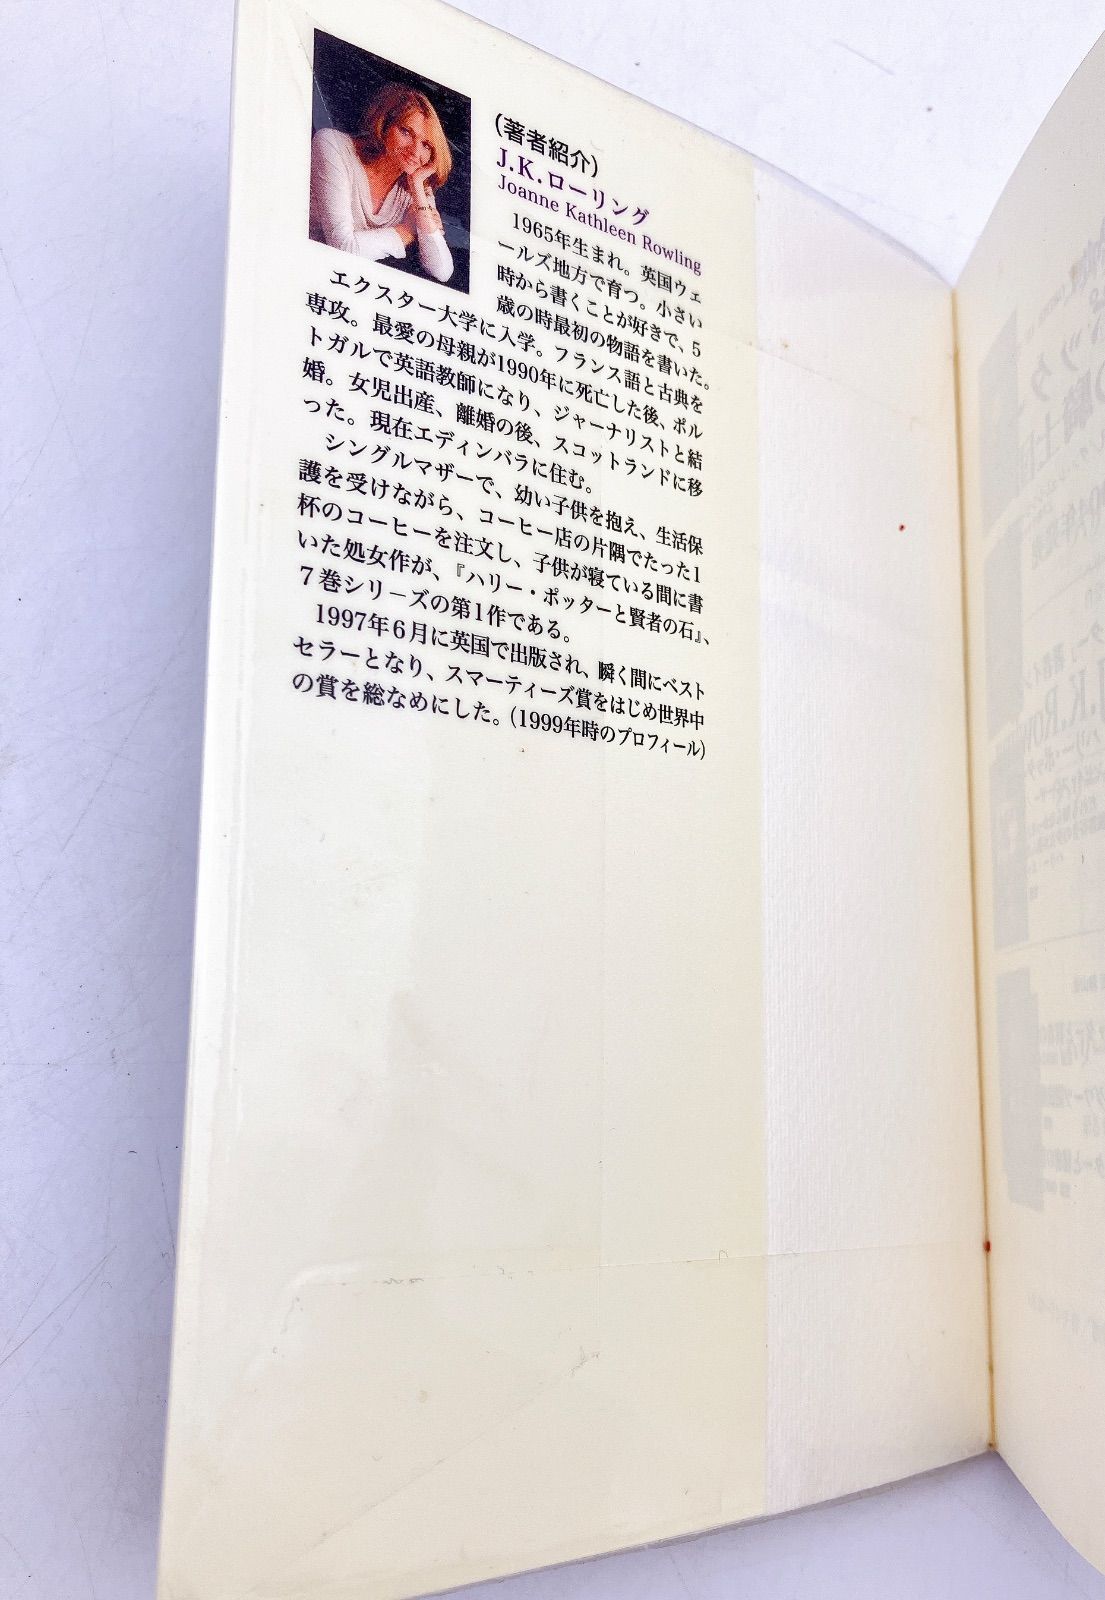 (著者紹介)
J.K.ローリング
Joanne Kathleen Rowling
1965年生まれ。英国ウェ
ールズ地方で育つ。小さい
時から書くことが好きで、5
歳の時最初の物語を書いた。
エクスター大学に入学。フランス語と古典を
専攻。最愛の母親が1990年に死亡した後、ポル
トガルで英語教師になり、ジャーナリストと結
婚。女児出産、離婚の後、スコットランドに移
った。現在エディンバラに住む。
シングルマザーで、幼い子供を抱え、生活保
護を受けながら、コーヒー店の片隅でたった1
杯のコーヒーを注文し、子供が寝ている間に書
いた処女作が、『ハリー・ポッターと賢者の石』、
7巻シリーズの第1作である。
1997年6月に英国で出版され、瞬く間にベスト
セラーとなり、スマーティーズ賞をはじめ世界中
の賞を総なめにした。(1999年時のプロフィール)